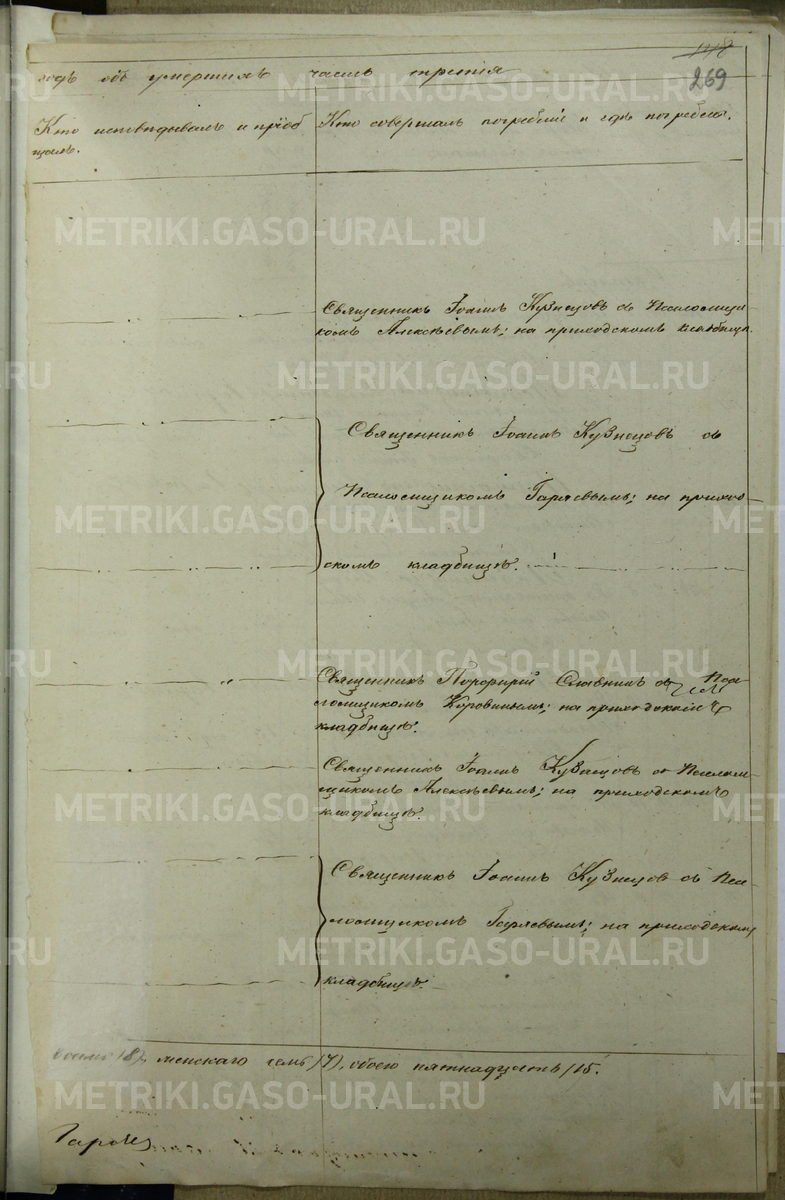 269
годъ объ умершихъ часть третія
Кто исповѣдывалъ и пріоб Кто совершалъ погребеніе и гдѣ погребены.
щалъ.
Священникъ Іоаннъ Кузнецовъ съ Псаломщи
комъ Алексѣевымъ; на приходскомъ кладбищѣ.
Священникъ Іоаннъ Кузнецовъ съ
Псаломщикомъ Гаряевымъ; на приход-
скомъ кладбищѣ.
Священникъ Порфирій Славнинъ съ Пса-
ломщикомъ Коровинымъ; на приходскомъ
кладбищѣ.
Священникъ Іоаннъ Кузнецовъ съ Псалом-
щикомъ Алексѣевымъ; на приходскомъ
кладбищѣ.
Священникъ Іоаннъ Кузнецовъ съ Пса-
ломщикомъ Гаряевымъ; на приходскомъ
кладбищѣ.
восемь /8/, женскаго семь /7/, обоего пятнадцать /15.
METRIKI.GASO-URAL.RU